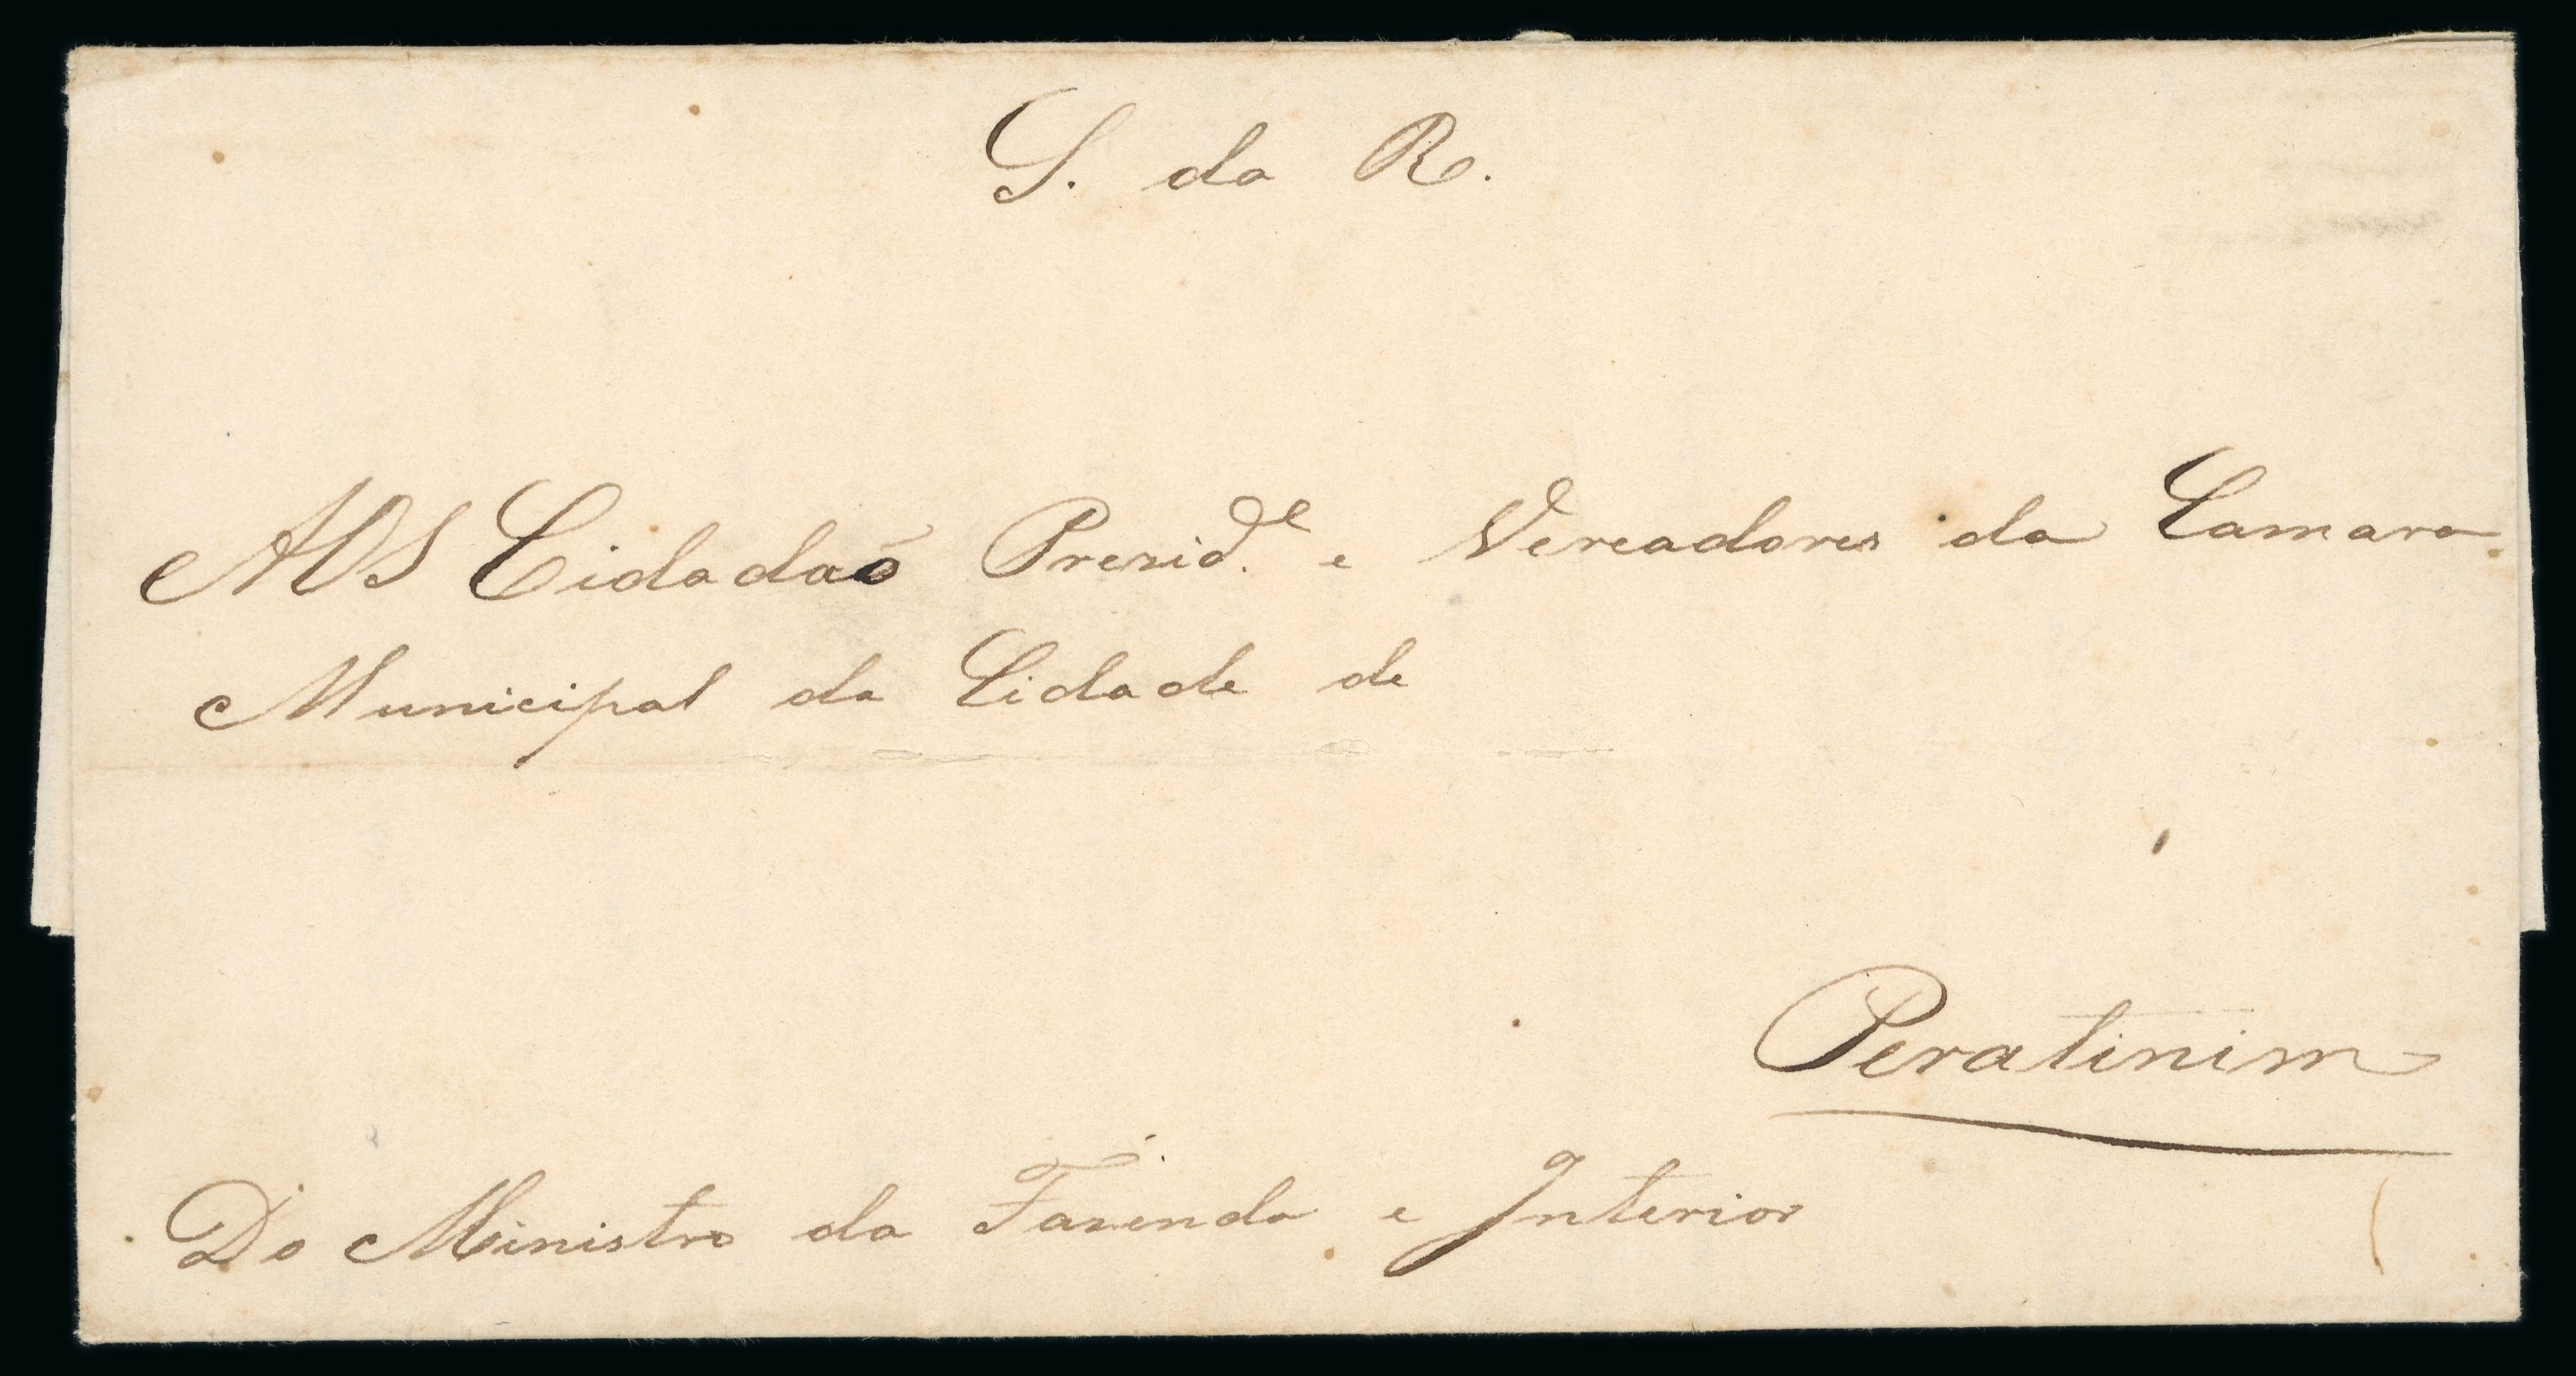 S. da R.
AOS Cidadaõ Prezid.e e Vereadores da Camara
Municipal da Cidade de
Peratinim
Do Ministro da Fazenda e Interior